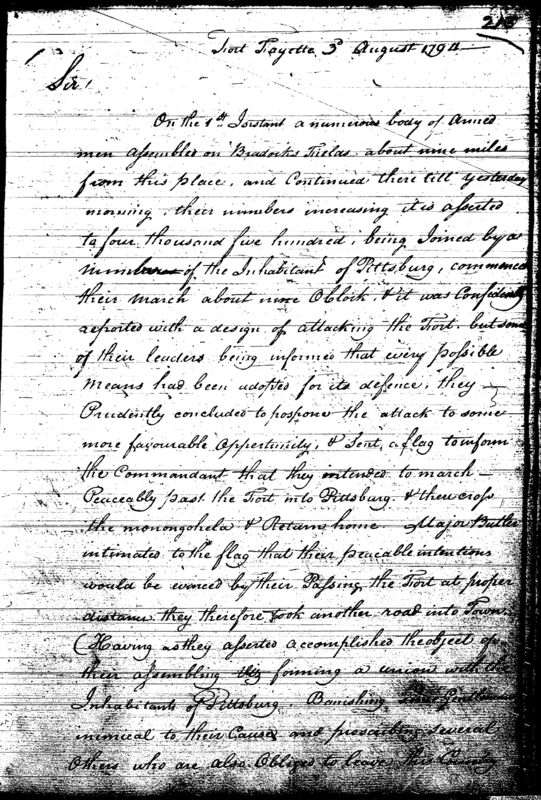 213
Fort Fayette 3d August 1794
Sir!
On the 1st Instant a numerous body of Armed
men assembled on Bradocks Fields about nine miles
from this place, and Continued there till yesterday
morning, their numbers increasing it is asserted
to four thousand five hundred, being Joined by a
number of the Inhabitants of Pittsburg, commenced
their march about nine OClock, & it was Confidently
reported with a design of attacking the Fort, but some
of their leaders being informed that every possible
means had been adopted for its defence, they
Prudently concluded to pospone the attack to some
more favourable Oppertunity, & Sent a flag to inform
the Commandant that they intended to march
Peaceably past the Fort into Pittsburg, & then cross
the monongohela & Return home. Major Butler
intimated to the flag that their peacable intentions
would be evinced by their Passing the Fort at proper
distance they therefore took another road into Town.
(Having as they asserted accomplished the object of
their assembling Viz forming a union with the
Inhabitants of Pittsburg, Banishing
inimical to their Cause and proscribing several
Others who are also Obliged to leave this Country